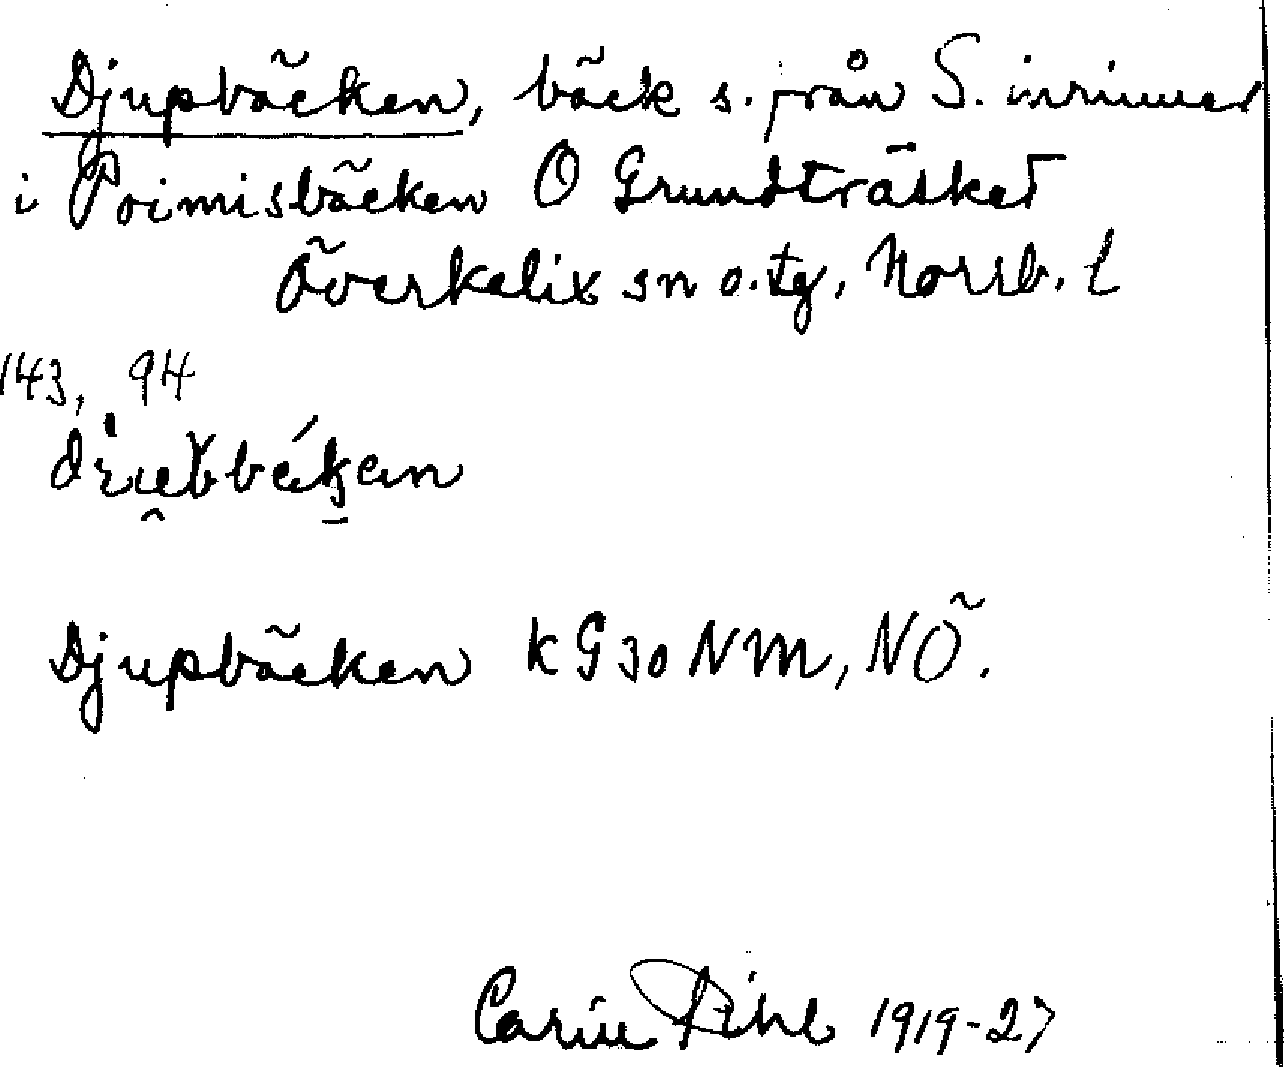 Djupbäcken, bäck s. från S. inrinner
i Poimisbäcken O Grundträsket
Överkalix sn o. tg, Norrb. l
143, 94
Djupbäcken k G 30 NM, NÖ.
Carin Pihl 1919-27